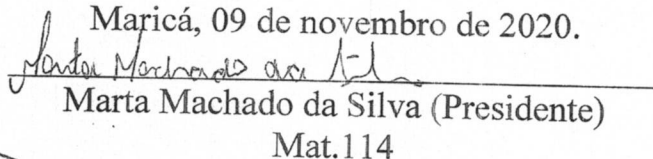 Maricá, 09 de novembro de 2020.
Marta Machado da Silva
Marta Machado da Silva (Presidente)
Mat.114